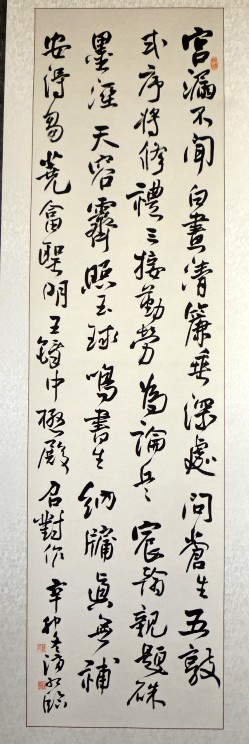 宮漏不聞白晝清簾垂深處問蒼生五敦
式序將修禮三接勤勞為論兵宸翰親題硃
墨溼天容霽照玉球鳴書生納牖真無補
安得芻蕘畣聖明王鐸中極殿召對作辛臨